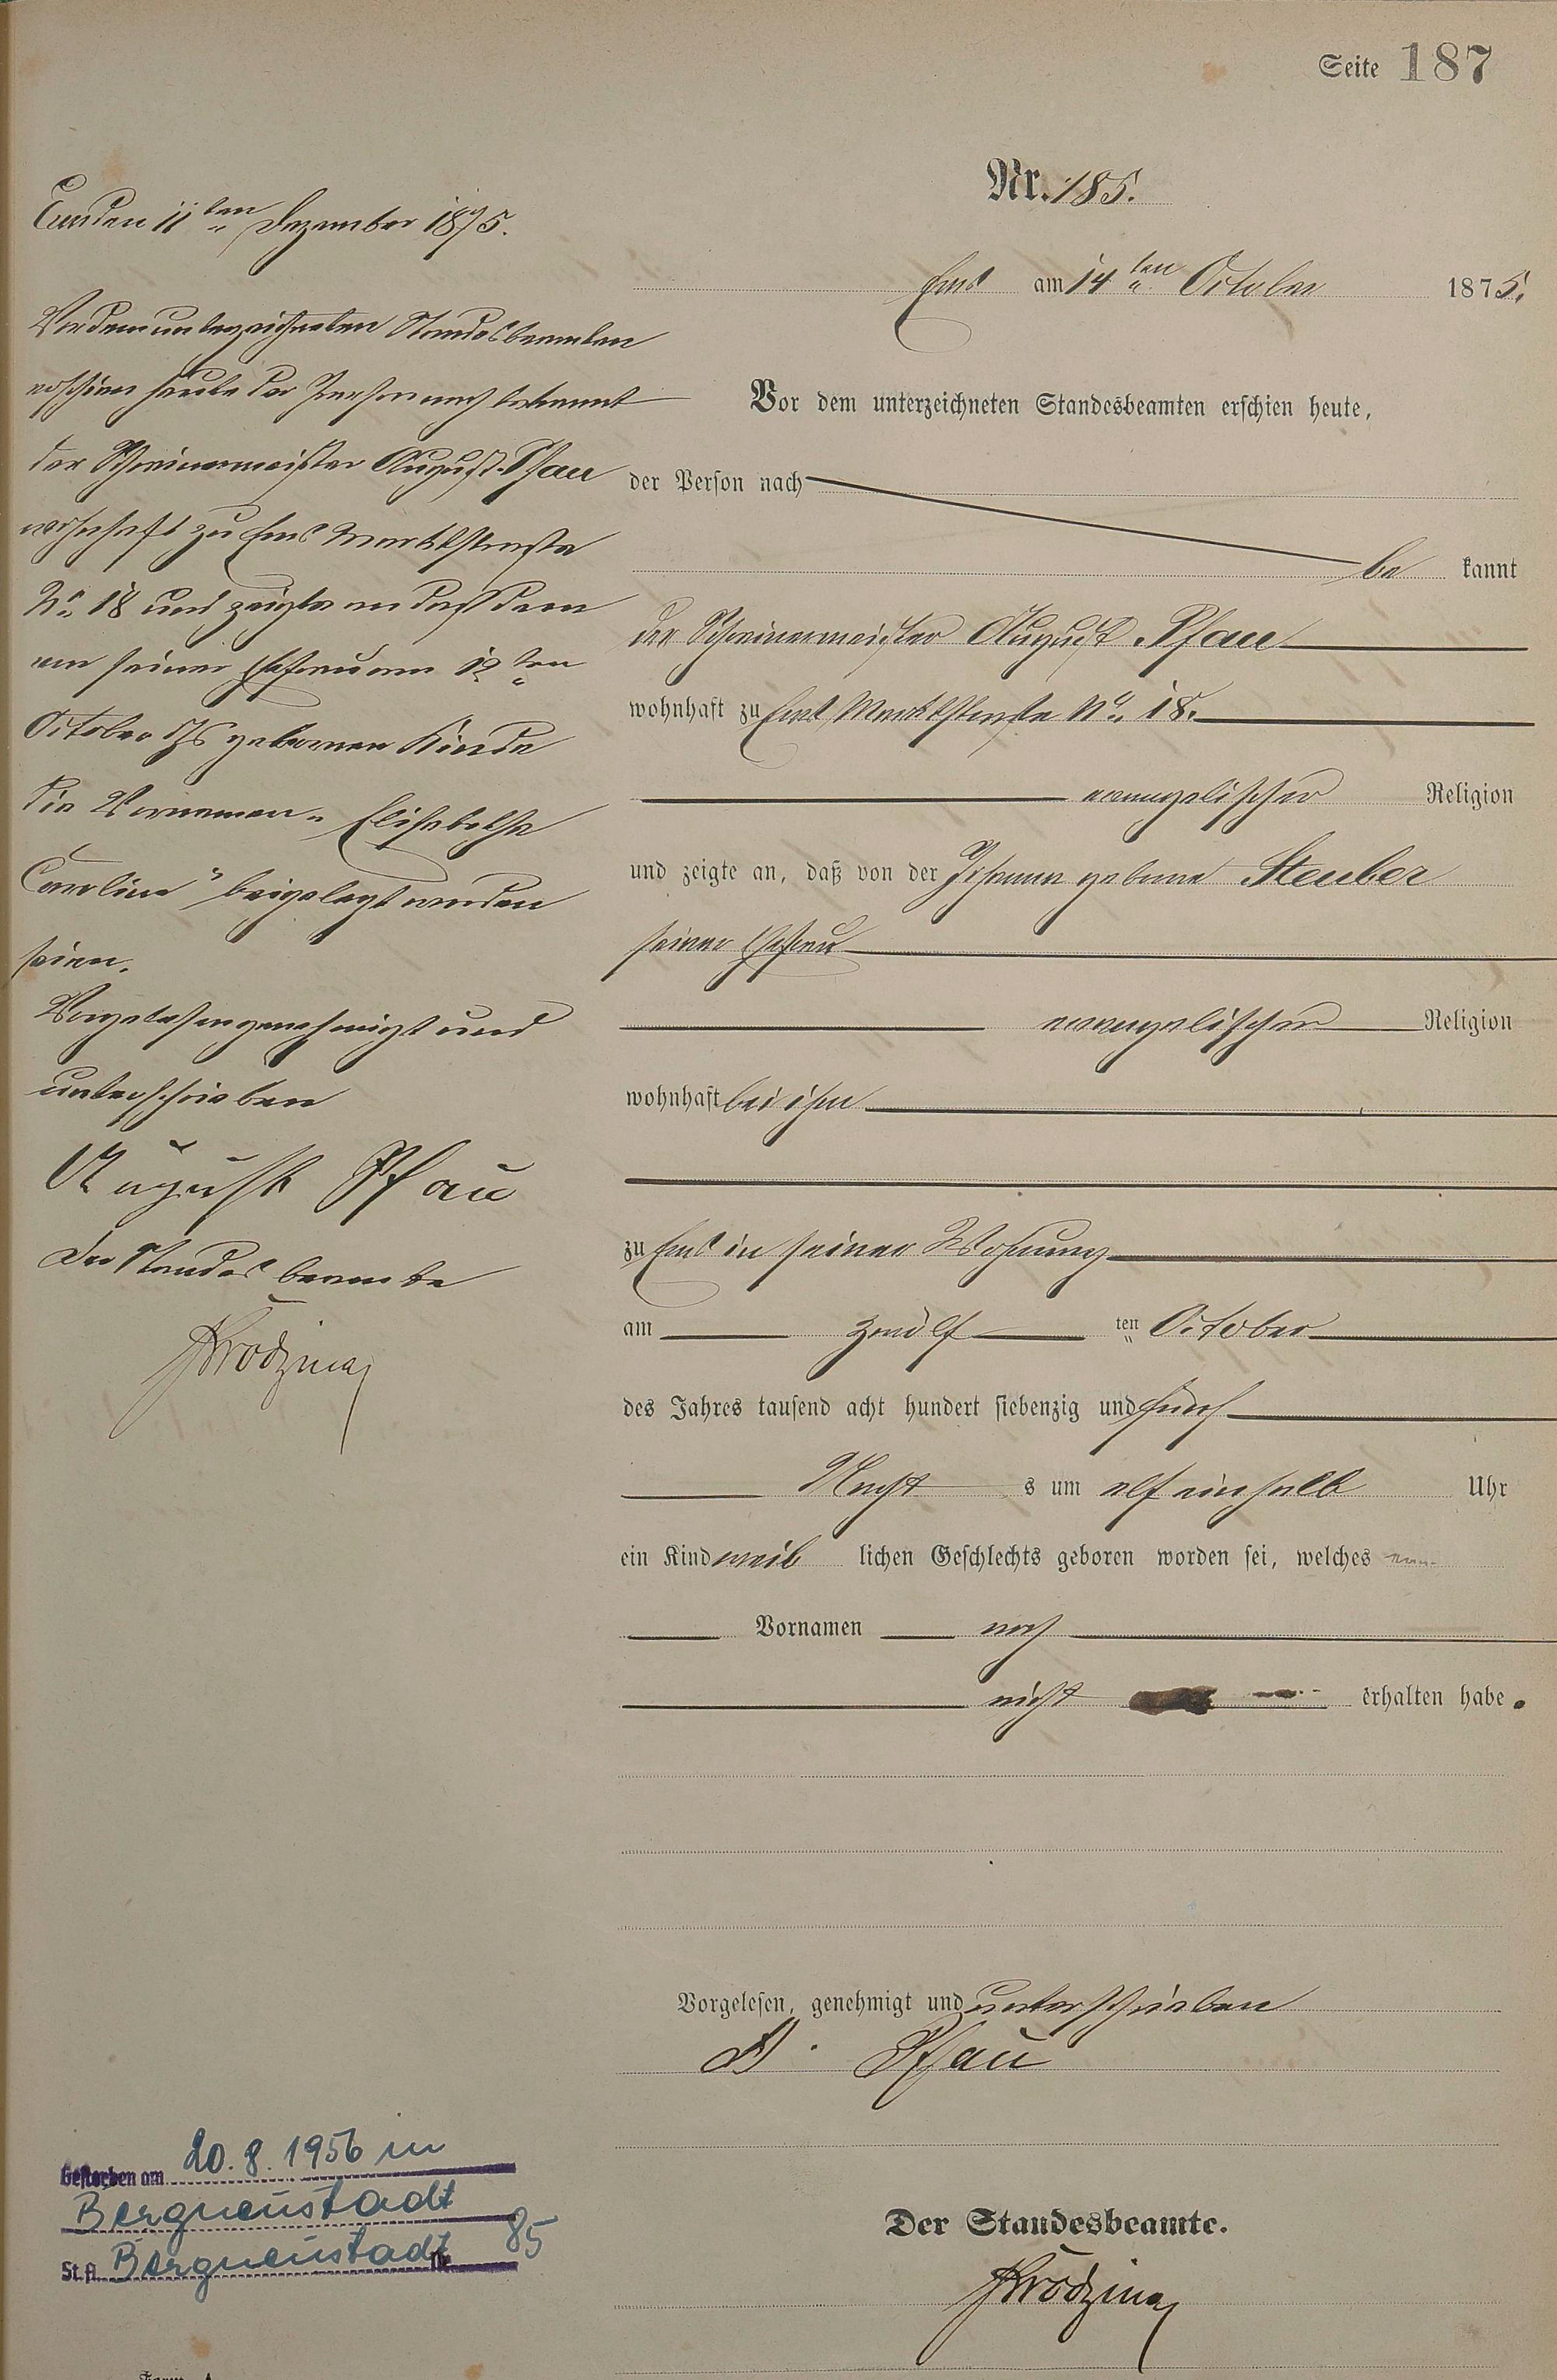 Seite 187
Nr. 185.
Ems am 14ten October 1875.
Vor dem unterzeichneten Standesbeamten erschien heute,
der Person nach
be kannt
der Schreinermeister August Pfau
wohnhaft zu Ems Marktstraße No. 18.
evangelischer Religion
und zeigte an, daß von der Johanna geborne Steuber
seiner Ehefrau
evangelischer Religion
wohnhaft bei ihm
zu Ems in seiner Wohnung
am zwölf ten October
des Jahres tausend acht hundert siebenzig und fünf
Nacht s um elf einhalb Uhr
ein Kind weib lichen Geschlechts geboren worden sei, welches
Vornamen noch
nicht erhalten habe.
Vorgelesen, genehmigt und unterschrieben
A. Pfau
Der Standesbeamte.
11ten Dezember 1875.
Vor dem unterzeichneten Standesbeamten
erschien heute der Person nach bekannt
der Schreinermeister August Pfau
wohnhaft zu Ems Marktstraße
No. 18 und zeigte an daß dem
von seiner Ehefrau am 12ten
October geborenen Kinde
die Vornamen „Elisabetha
Caroline“ beigelegt worden
seien.
Vorgelesen genehmigt und
unterschrieben
August Pfau
Der Standesbeamte
Gestorben am 20.8.1956 in
Bergneustadt
St.A. Bergneustadt Nr. 85